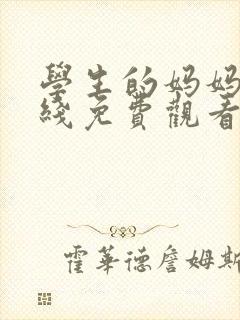 學生的妈妈
綫免費觀看
霍華德詹姆斯